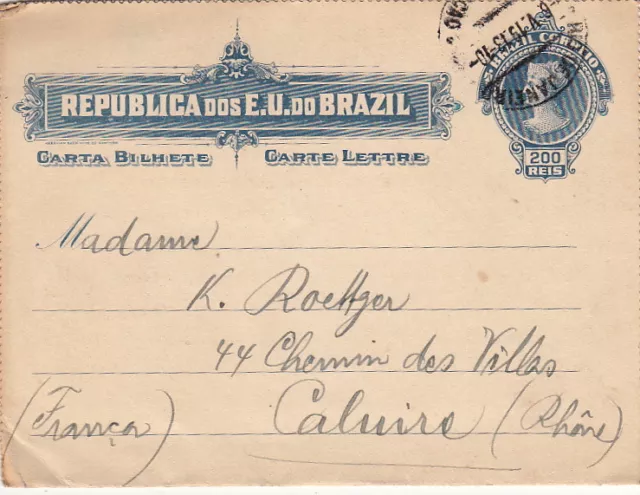 REPUBLICA DOS E.U. DO BRAZIL
CARTA BILHETE CARTE LETTRE
CORREIO
200
REIS
Madame
K. Roettger
44 Chemin des Villas
(França) Caluire (Rhône)